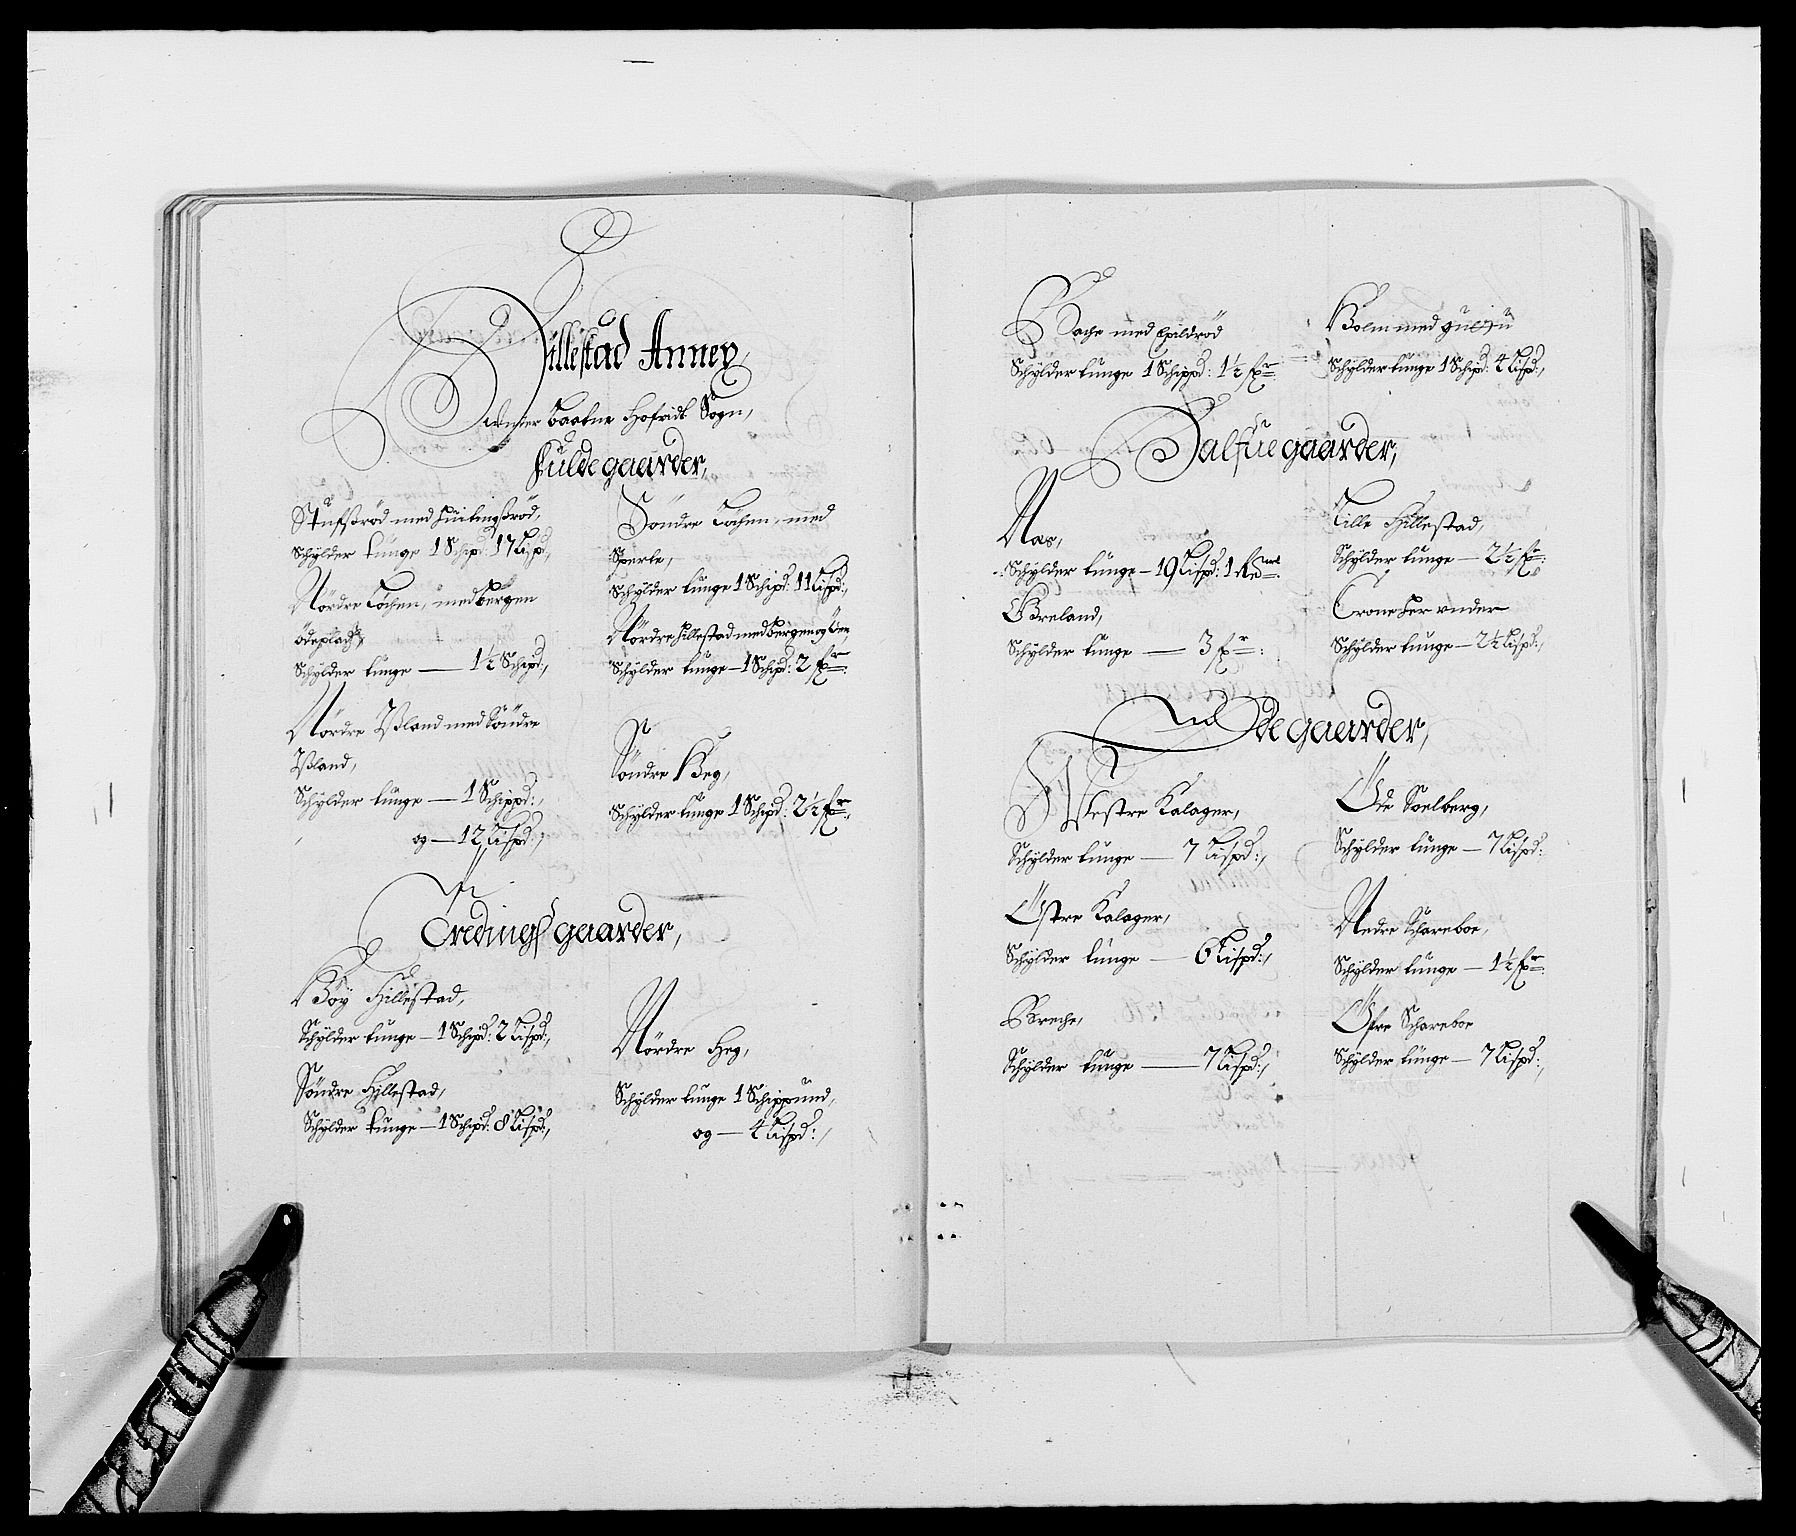 Hillestad Annex,
under Baatne Hofvids Sogn,
Fulde gaarder,
Stufsrød med huitingsrød,
Schylder tunge 1 Schipd: 17 Lispd:,
Nordre Løchen, med bergen
ödeplads,
Schylder tunge — 1½ Schipd:,
Nordre Island med Söndre
Island,
Schylder tunge — 1 Schippd:,
og — 12 Lispd:,
Söndre Løchen, med
Sperle,
Schylder tunge 1 Schipd: 11 Lispd:,
Nordre hillestad med bergen og Öen
Schylder tunge — 1 Schipd: 2 fr:
Söndre Heg,
Schylder tunge 1 Schipd: 2½ fr:,
Tredings gaarder,
Böy Hillestad,
Schylder tunge — 1 Schipd: 2 Lispd:,
Söndre Hillestad,
Schylder tunge — 1 Schipd: 8 Lispd:,
Nordre Heg,
Schylder tunge 1 Schippund,
og — 4 Lispd:,
Bache med
Schylder tunge 1 Schippd: 1½ fr:
Holm med
Schylder tunge 1 Schipd: 4 Lispd:,
Halfue gaarder,
Nas,
Schylder tunge — 19 Lispd: 1 Re:
Greland,
Schylder tunge — 3 fr:
Lille Hillestad,
Schylder tunge — 2½ fr:
Crone under
Schylder tunge — 2½ Lispd:,
Öde gaarder,
Westre Kalager,
Schylder tunge — 7 Lispd:,
Östre Kalager,
Schylder tunge — 6 Lispd:,
Breche,
Schylder tunge — 7 Lispd:,
Öde Soelberg,
Schylder tunge — 7 Lispd:
Nedre Schareboe,
Schylder tunge — 1½ fr:
Öfre Schareboe
Schylder tunge — 7 Lispd:,